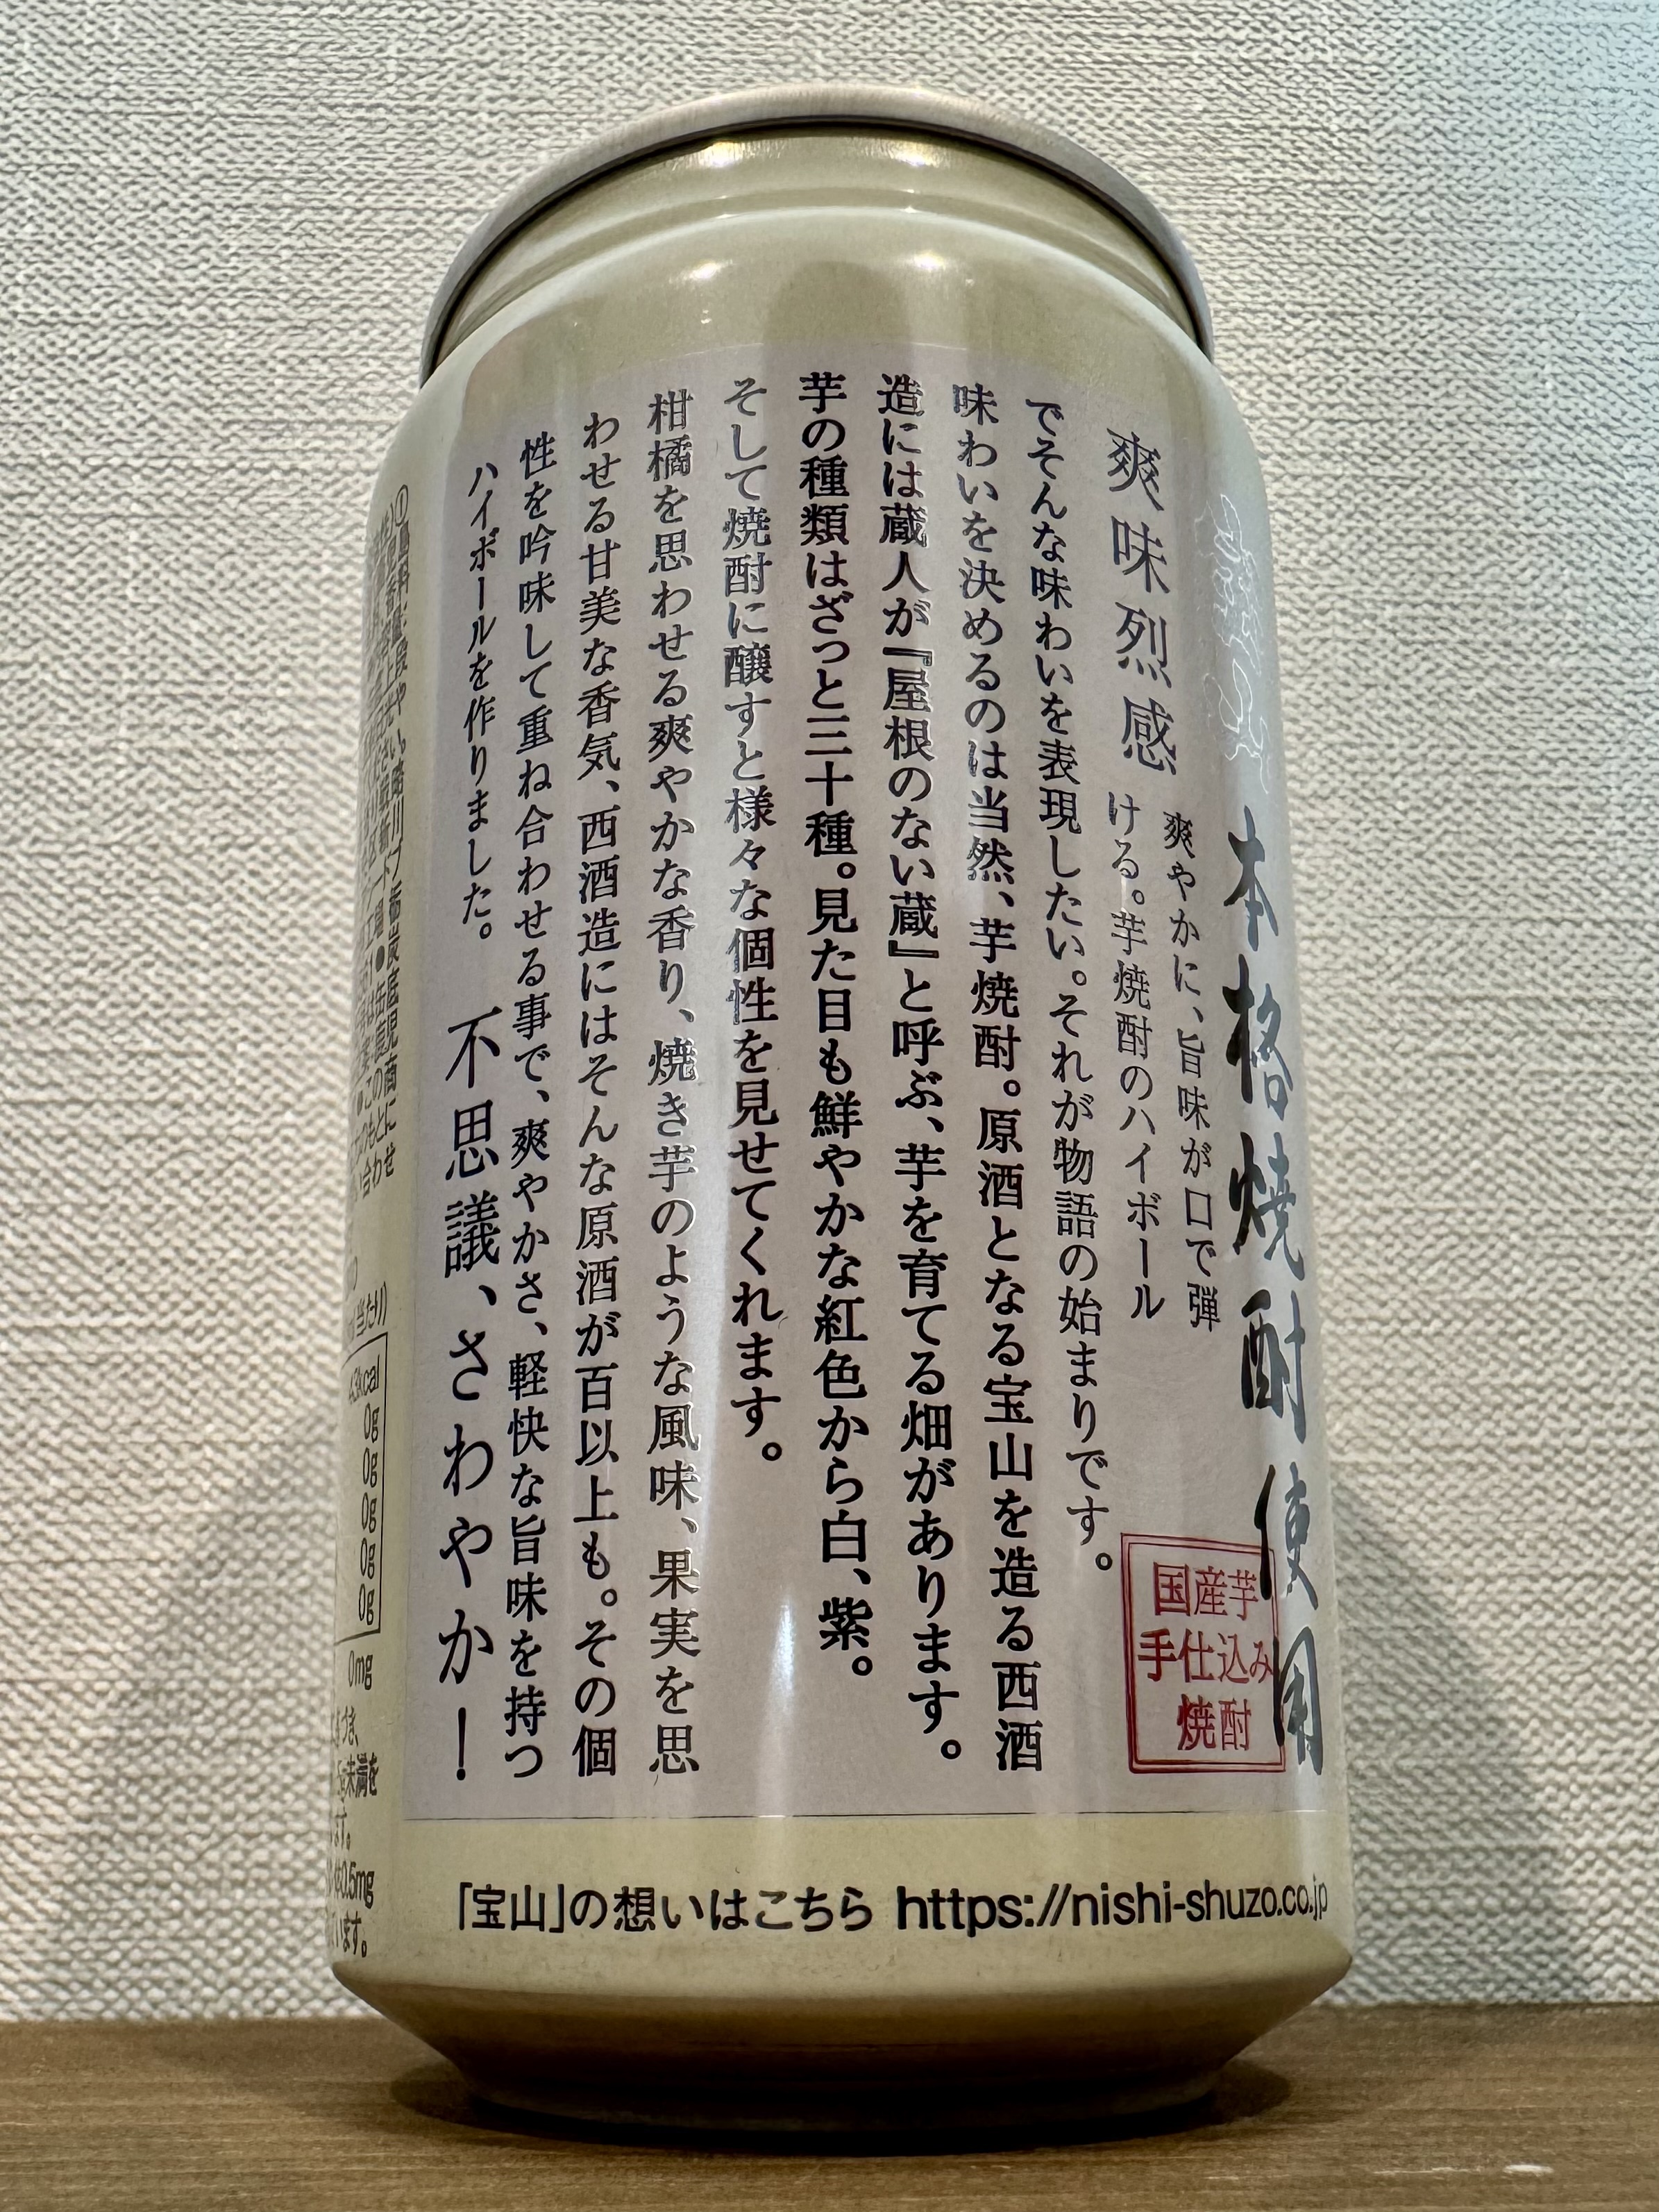 本格焼酎使用
爽味烈感
爽やかに、旨味が口で弾
ける。芋焼酎のハイボール
でそんな味わいを表現したい。それが物語の始まりです。
味わいを決めるのは当然、芋焼酎。原酒となる宝山を造る西酒
造には蔵人が『屋根のない蔵』と呼ぶ、芋を育てる畑があります。
芋の種類はざっと三十種。見た目も鮮やかな紅色から白、紫。
そして焼酎に醸すと様々な個性を見せてくれます。
柑橘を思わせる爽やかな香り、焼き芋のような風味、果実を思
わせる甘美な香気、西酒造にはそんな原酒が百以上も。その個
性を吟味して重ね合わせる事で、爽やかさ、軽快な旨味を持つ
ハイボールを作りました。
不思議、さわやか!
国産芋
手仕込み
焼酎
「宝山」の想いはこちら https://nishi-shuzo.co.jp
当たり)
43kcal
0g
0g
0g
0g
0g
0mg